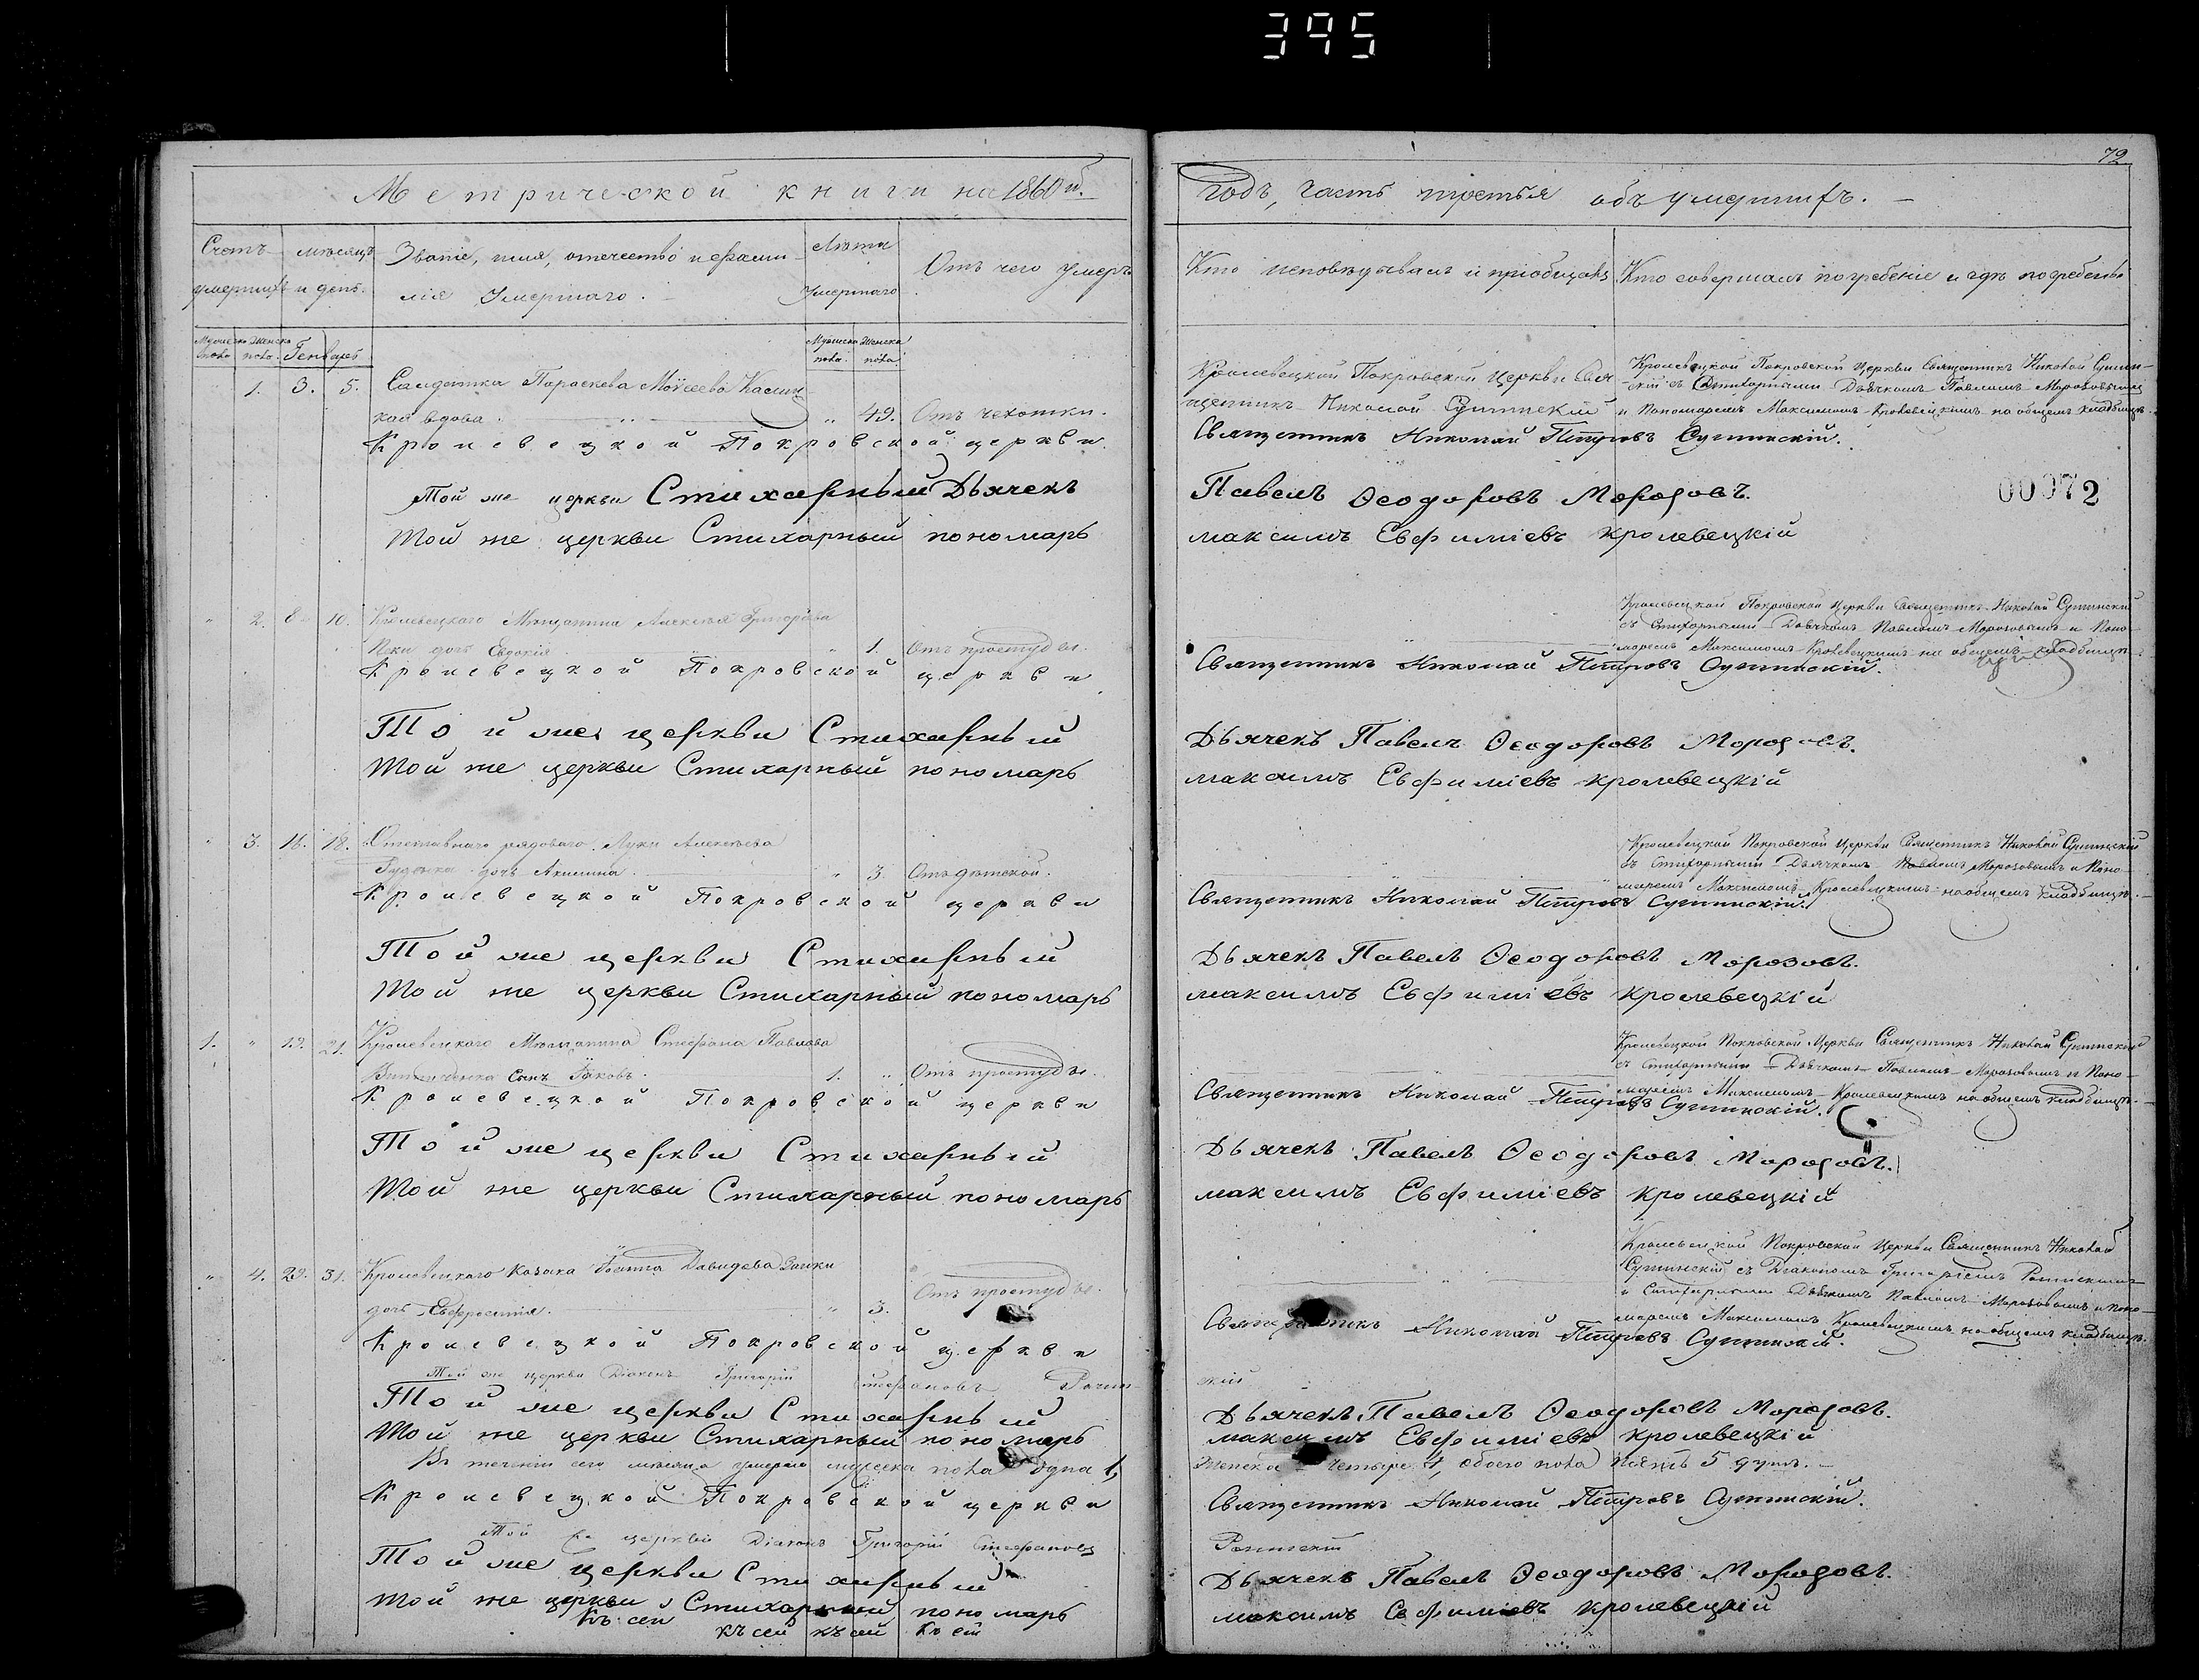 395
72
Метрической книги на 1860й.
годъ, часть третья объ умершихъ.
Счетъ умершихъ
мѣсяцъ и день.
Званіе, имя, отечество и фами-
лія умершаго.
Лѣта умершаго
Отъ чего умеръ
Кто исповѣдывалъ и пріобщалъ
Кто совершалъ погребеніе и гдѣ погребены
Мужеска пола Женска пола. Генварь
Мужеска пола. Женска пола.
1. 3. 5. Солдатка Параскева Моѵсеева
кая вдова. 49. Отъ чехотки.
Кролевецкой Покровской Церкви Свя-
щенникъ Николай
Кролевецкой Покровской Церкви Священникъ Николай
съ Стихарными Дьячкомъ Павломъ Морозовымъ
и Пономаремъ Максимомъ Кролевецкимъ на общемъ кладбищѣ.
Кролевецкой Покровской церкви Священникъ Николай Петровъ
Той же церкви Стихарный Дьячекъ Павелъ Ѳеодоровъ Морозовъ.
Той же церкви Стихарный пономарь максимъ Евфиміевъ кролевецкій
00072
2. 8. 10. Кролевецкаго Мѣщанина Алексѣя Григорьева
дочь Евдокія. 1. Отъ простуды.
Кролевецкой Покровской Церкви Священникъ Николай
съ Стихарными Дьячкомъ Павломъ Морозовымъ и Поно-
маремъ Максимомъ Кролевецкимъ на общемъ кладбищѣ
Кролевецкой Покровской церкви Священникъ Николай Петровъ
Той же церкви Стихарный Дьячекъ Павелъ Ѳеодоровъ Морозовъ.
Той же церкви Стихарный пономарь максимъ Евфиміевъ кролевецкій
3. 16. 18. Отставнаго рядоваго Луки Алексѣева
дочь Акилина. 3. Отъ дѣтской.
Кролевецкой Покровской Церкви Священникъ Николай
съ Стихарными Дьячкомъ Павломъ Морозовымъ и Поно-
маремъ Максимомъ Кролевецкимъ на общемъ кладбищѣ.
Кролевецкой Покровской церкви Священникъ Николай Петровъ
Той же церкви Стихарный Дьячекъ Павелъ Ѳеодоровъ Морозовъ.
Той же церкви Стихарный пономарь максимъ Евфиміевъ кролевецкій
1. 19. 21. Кролевецкаго Мѣщанина Стефана Павлова
Сынъ Іаковъ. 1. Отъ простуды.
Кролевецкой Покровской Церкви Священникъ Николай
съ Стихарными Дьячкомъ Павломъ Морозовымъ и Поно-
маремъ Максимомъ Кролевецкимъ на общемъ кладбищѣ.
Кролевецкой Покровской церкви Священникъ Николай Петровъ
Той же церкви Стихарный Дьячекъ Павелъ Ѳеодоровъ Морозовъ.
Той же церкви Стихарный пономарь максимъ Евфиміевъ кролевецкій
4. 29. 31. Кролевецкаго Козака Іоанна Давидова
дочь Евфросинія. 3. Отъ простуды.
Кролевецкой Покровской Церкви Священникъ Николай
съ Діакономъ Григоріемъ
и Стихарными Дьячкомъ Павломъ Морозовымъ и Поно-
маремъ Максимомъ Кролевецкимъ на общемъ кладбищѣ.
Кролевецкой Покровской церкви Священникъ Николай Петровъ
Той же церкви Діаконъ Григорій Стефановъ
Той же церкви Стихарный Дьячекъ Павелъ Ѳеодоровъ Морозовъ.
Той же церкви Стихарный пономарь максимъ Евфиміевъ кролевецкій
Въ теченіи сего мѣсяца умерло мужеска пола одна 1, женска четыре 4, обоего пола пять 5 душъ.
Кролевецкой Покровской церкви Священникъ Николай Петровъ
Той же церкви Діаконъ Григорій Стефановъ
Той же церкви Стихарный Дьячекъ Павелъ Ѳеодоровъ Морозовъ.
Той же церкви Стихарный пономарь максимъ Евфиміевъ кролевецкій
Къ сей къ сей къ сей Къ сей